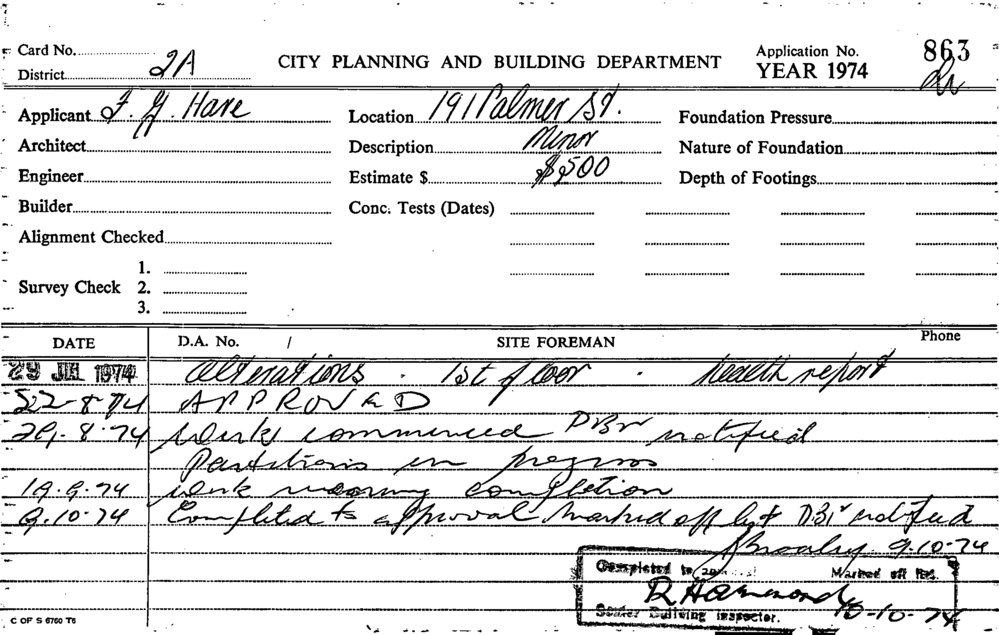 Card No.
District 2A
CITY PLANNING AND BUILDING DEPARTMENT
Application No. 863
YEAR 1974
Applicant F. G. Hare
Location 191 Palmer St.
Foundation Pressure
Architect
Description Minor
Nature of Foundation
Engineer
Estimate $ $500
Depth of Footings
Builder
Conc. Tests (Dates)
Alignment Checked
Survey Check 1.
2.
3.
DATE D.A. No. / SITE FOREMAN Phone
29 JUL 1974 alterations . 1st floor . health report
22-8-74 APPROVED
29.8.74 Work commenced DBI notified
Partitions in progress
19.9.74 Work nearing completion
9.10.74 Completed to approval Marked off list DBI notified
9.10-74
Completed to Marked off list.
R Hammond
Senior Building Inspector. 10-10-74
C OF S 6760 T5